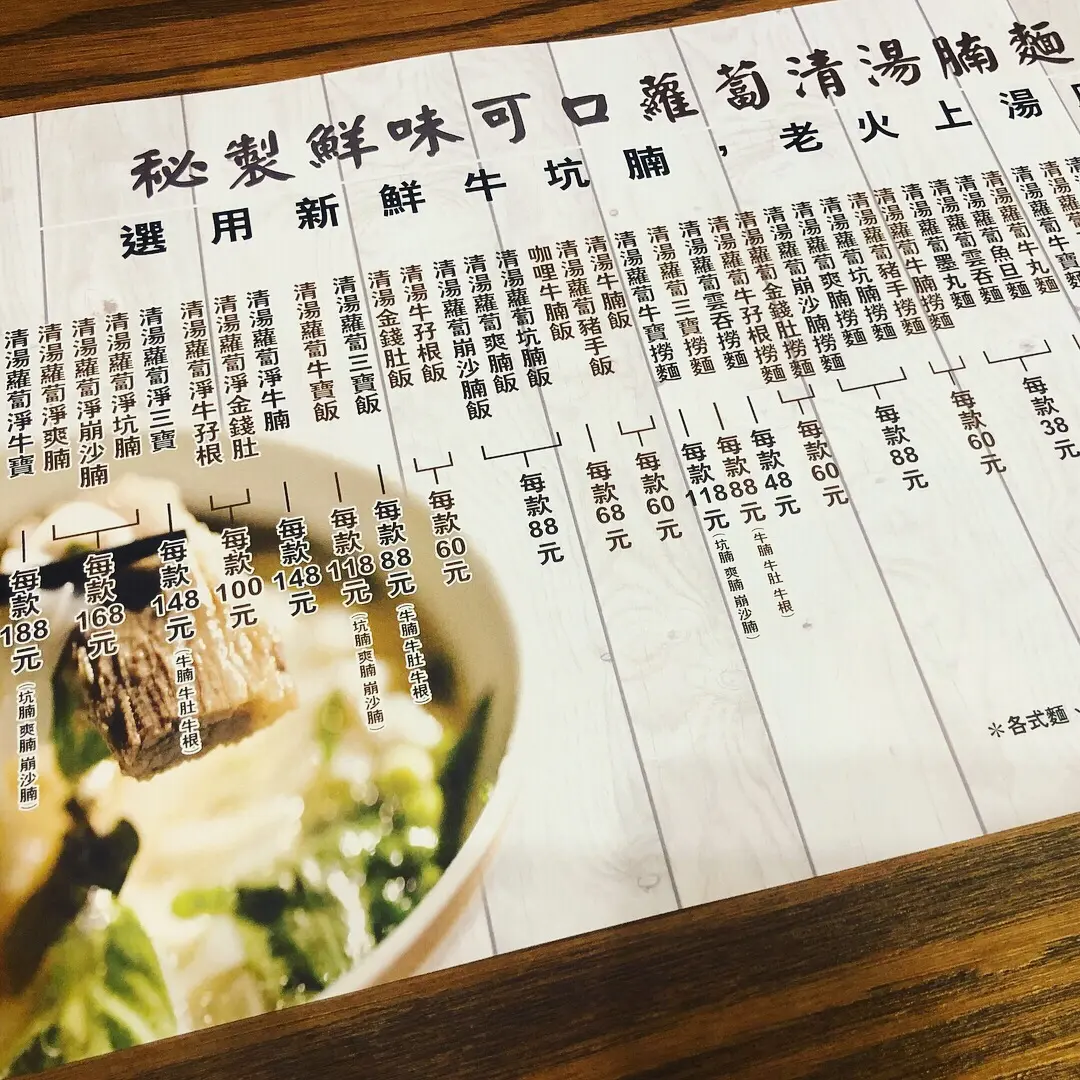 秘製鮮味可口蘿蔔清湯腩麵
選用新鮮牛坑腩，老火上湯
清湯蘿蔔牛寶麵
清湯蘿蔔牛丸麵
清湯蘿蔔魚旦麵
清湯蘿蔔雲吞麵
清湯蘿蔔墨丸麵
清湯蘿蔔牛腩撈麵
清湯蘿蔔豬手撈麵
清湯蘿蔔坑腩撈麵
清湯蘿蔔爽腩撈麵
清湯蘿蔔崩沙腩撈麵
清湯蘿蔔金錢肚撈麵
清湯蘿蔔牛孖根撈麵
清湯蘿蔔雲吞撈麵
清湯蘿蔔三寶撈麵
清湯蘿蔔牛寶撈麵
清湯牛腩飯
清湯蘿蔔豬手飯
咖哩牛腩飯
清湯蘿蔔坑腩飯
清湯蘿蔔爽腩飯
清湯蘿蔔崩沙腩飯
清湯牛孖根飯
清湯金錢肚飯
清湯蘿蔔三寶飯
清湯蘿蔔牛寶飯
清湯蘿蔔淨牛腩
清湯蘿蔔淨金錢肚
清湯蘿蔔淨牛孖根
清湯蘿蔔淨三寶
清湯蘿蔔淨坑腩
清湯蘿蔔淨崩沙腩
清湯蘿蔔淨爽腩
清湯蘿蔔淨牛寶
每款38元
每款60元
每款88元
每款60元
每款48元
每款88元（牛腩 牛肚 牛根）
每款118元（坑腩 爽腩 崩沙腩）
每款60元
每款68元
每款88元
每款60元
每款88元（牛腩 牛肚 牛根）
每款118元（坑腩 爽腩 崩沙腩）
每款148元
每款100元
每款148元（牛腩 牛肚 牛根）
每款168元
每款188元（坑腩 爽腩 崩沙腩）
＊各式麵、